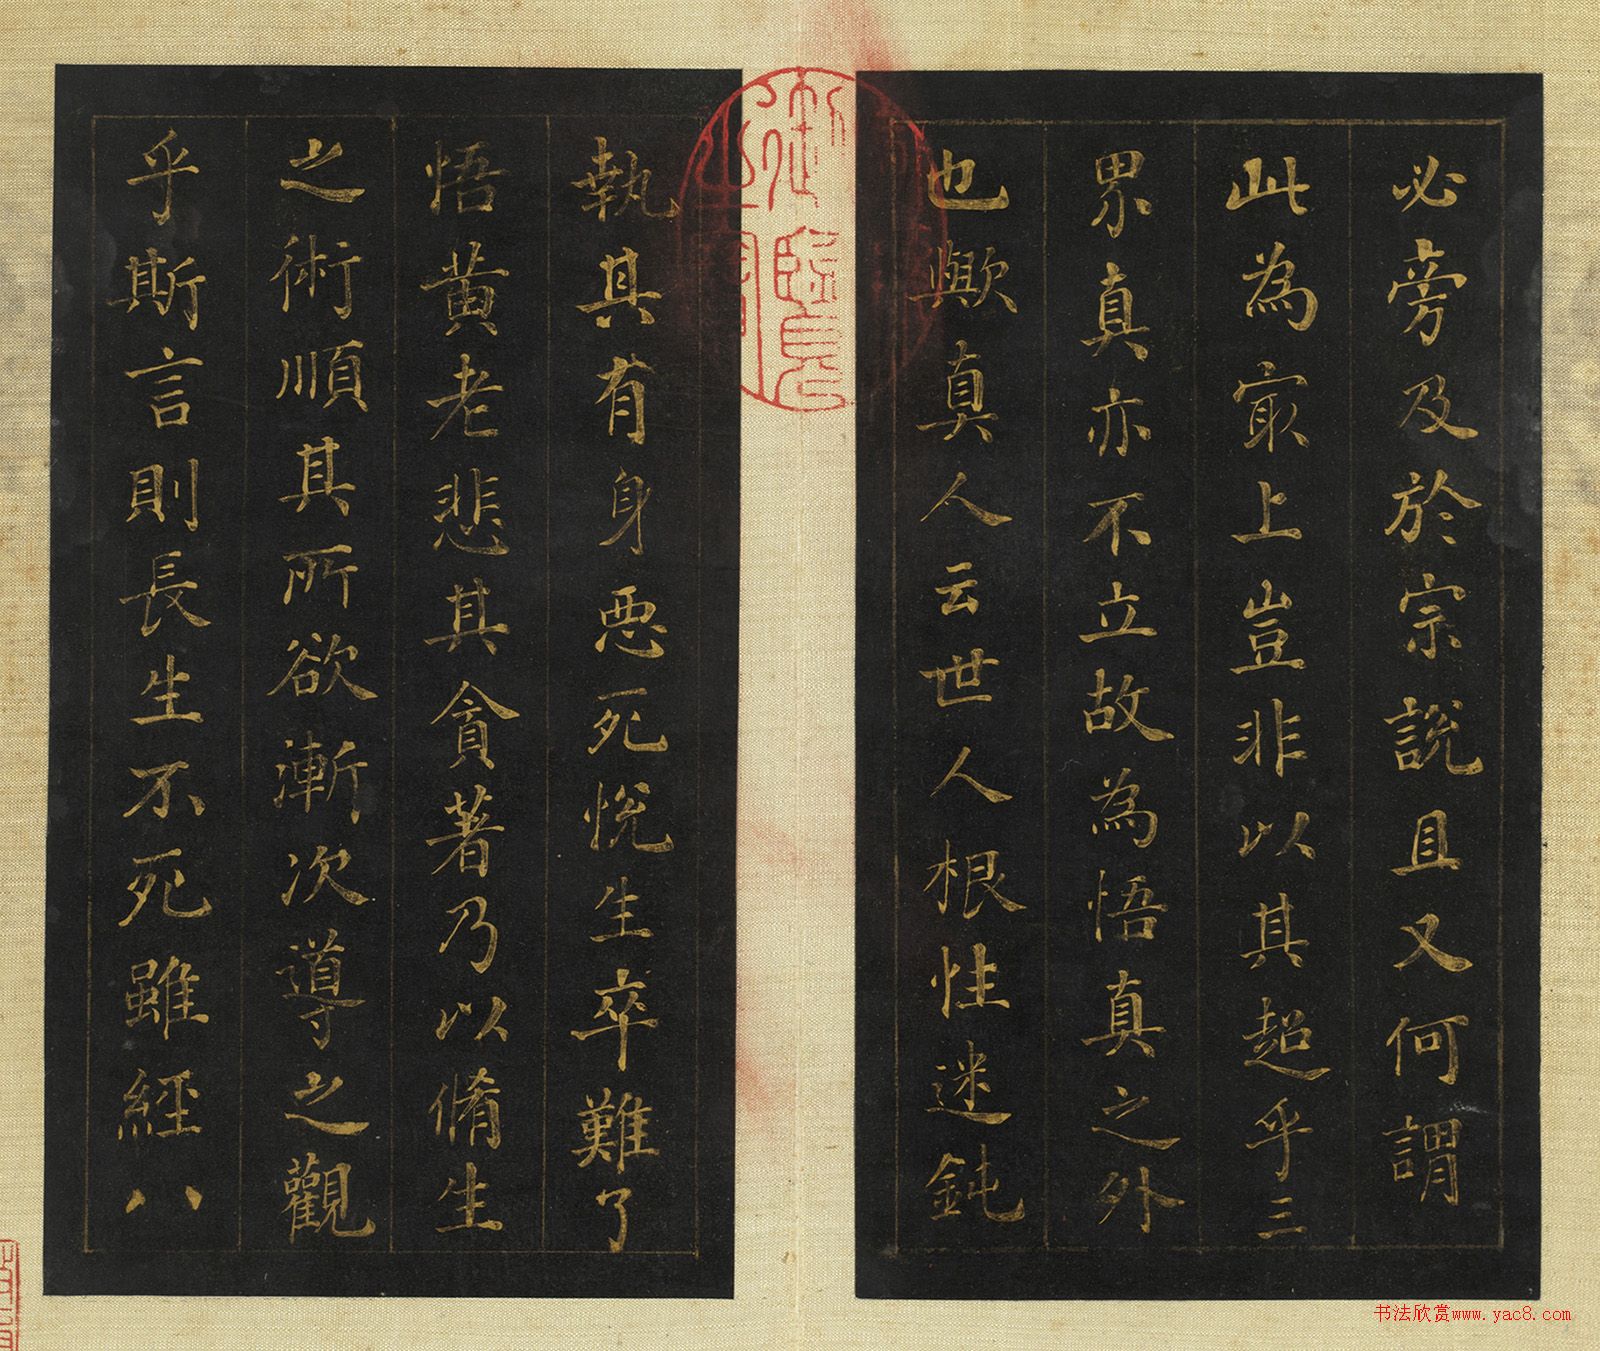 必旁及於宗說且又何謂
此為㝡上豈非以其超乎三
界真亦不立故為悟真之外
也歟真人云世人根性迷鈍
執其有身惡死悅生卒難了
悟黃老悲其貪著乃以脩生
之術順其所欲漸次導之觀
乎斯言則長生不死雖經八
书法欣赏www.yac8.com